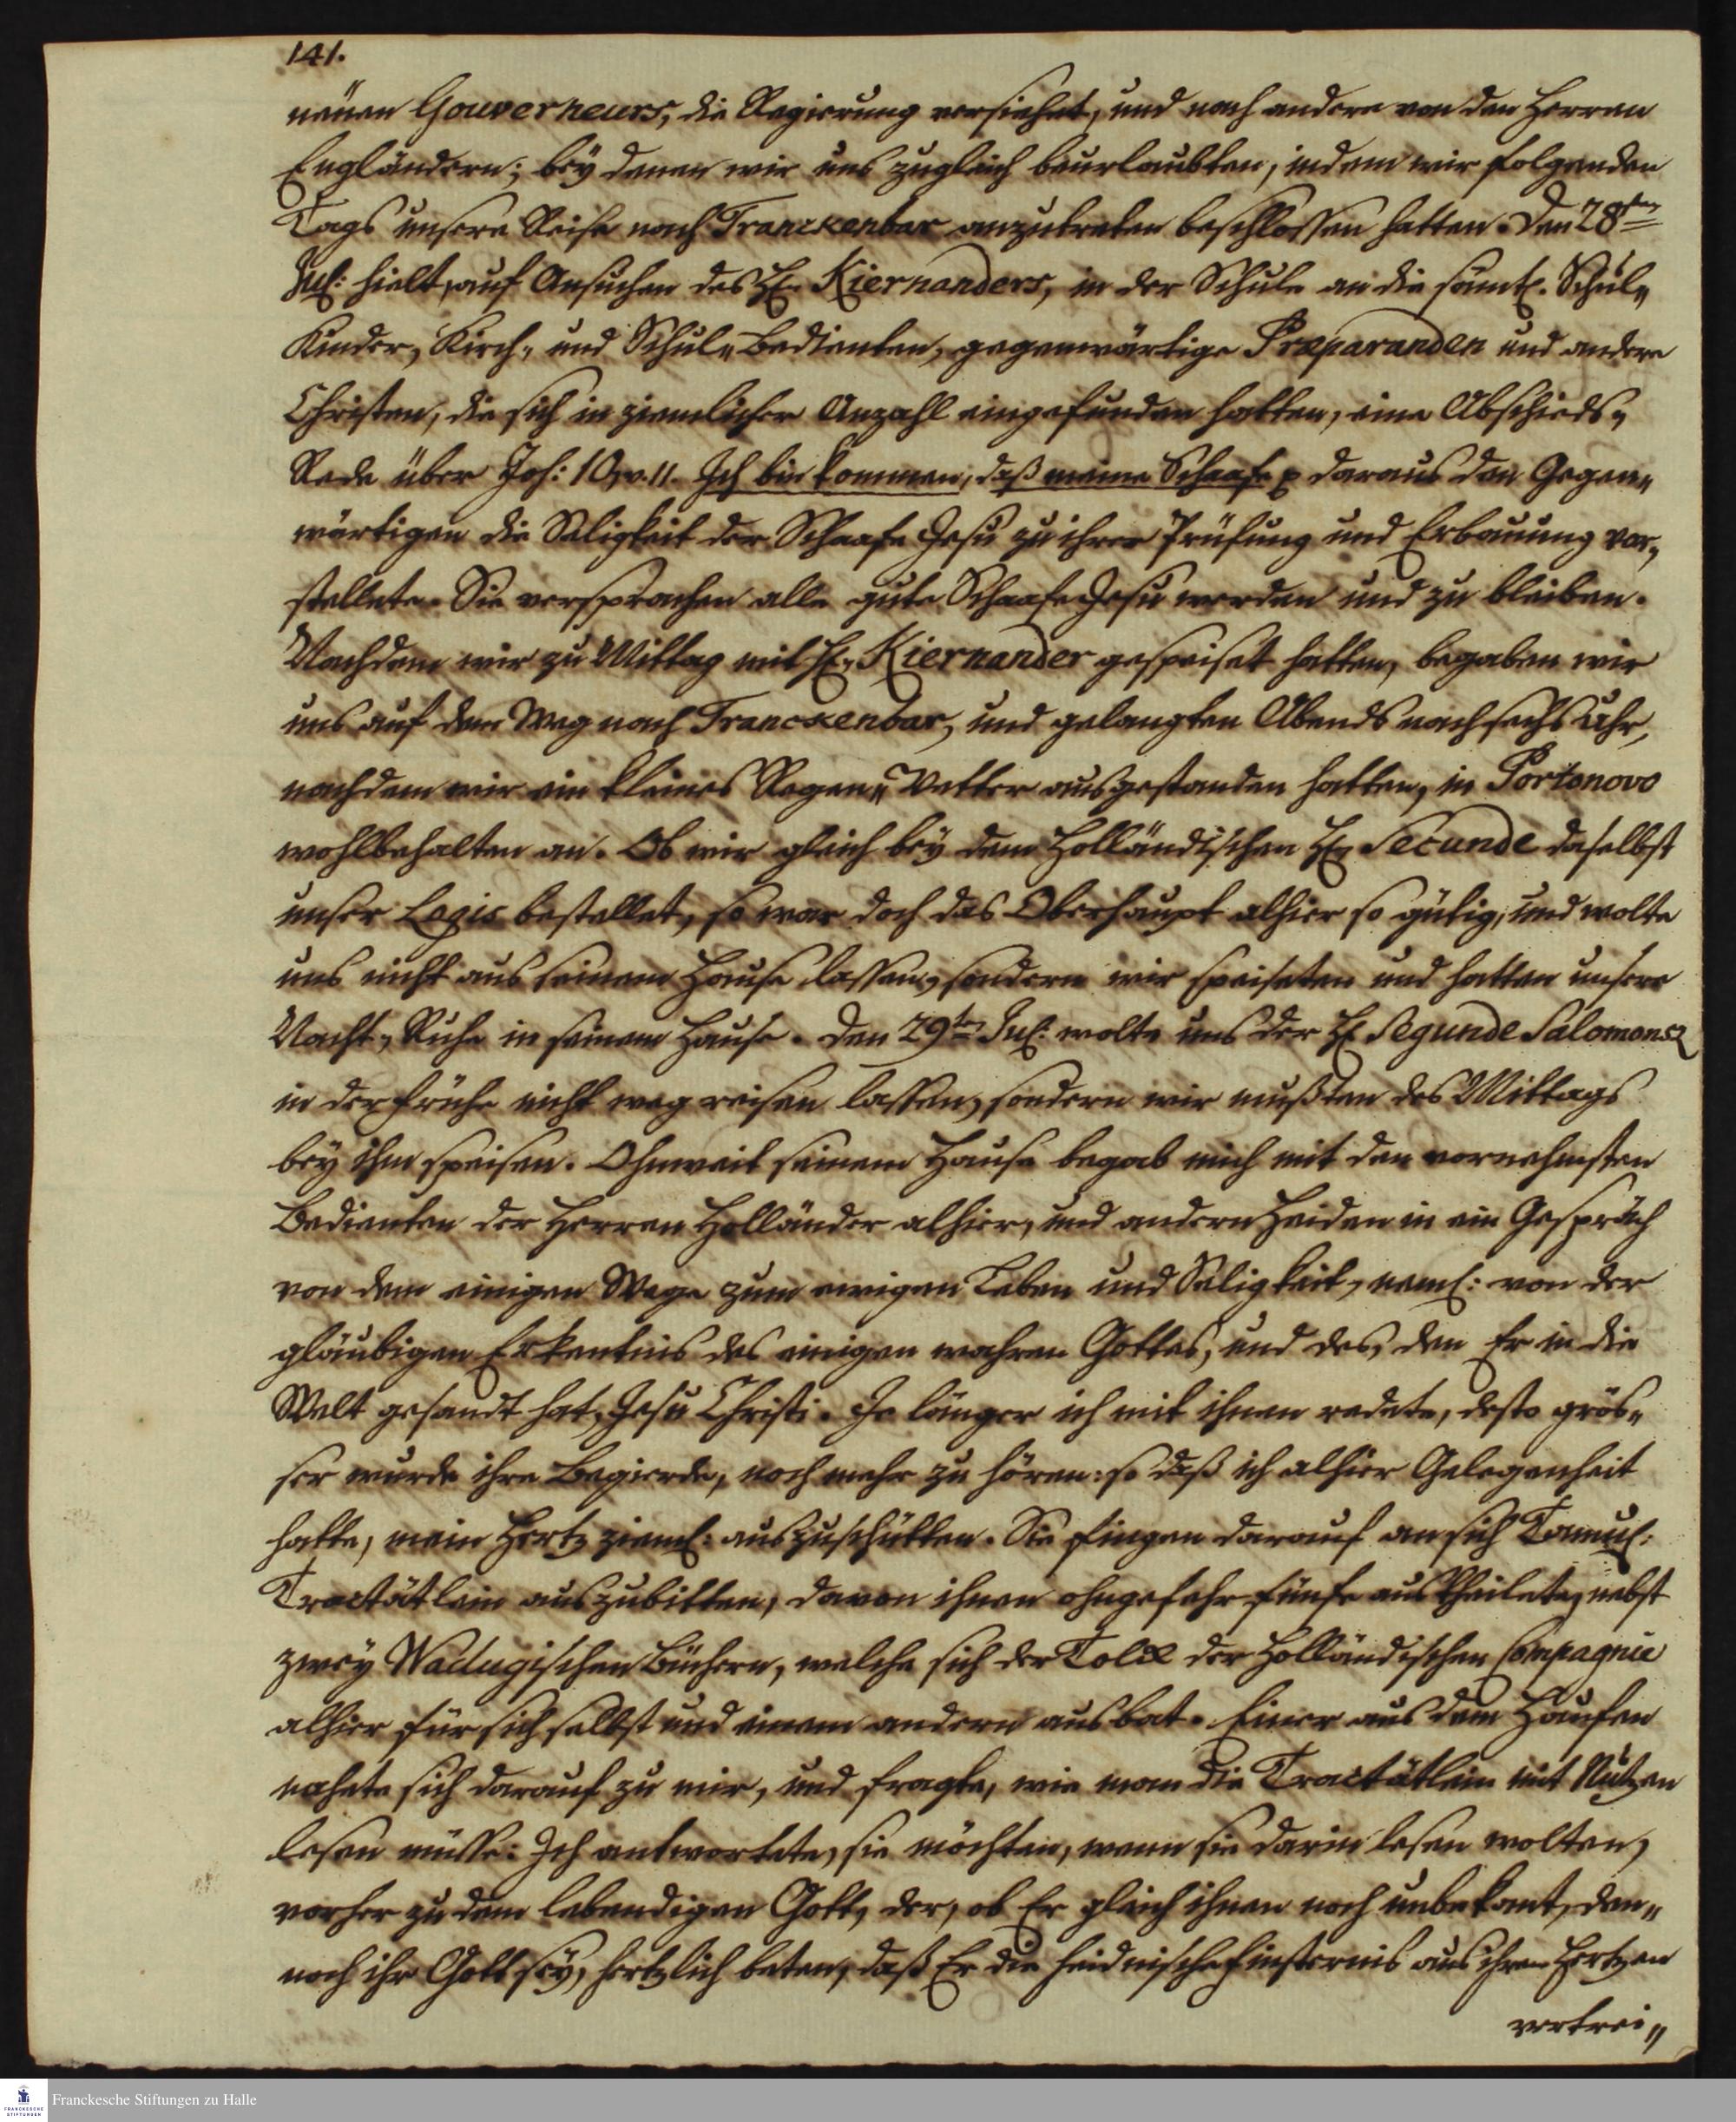 141.
neuen Gouverneurs, die Regierung versiehet, und noch andere von den Herren
Engländern; bey denen wir uns zugleich beurlaubten, indem wir folgenden
Tags unsere Reise nach Tranckenbar anzutreten beschlossen hatten. Den 28ten
Jul: hielt, auf Ansuchen des H. Kiernanders, in der Schule an die sämtl. Schul„
Kinder, Kirch„ und Schul„Bedienten, gegenwärtige Præparanden und andere
Christen, die sich in ziemlicher Anzahl eingefunden hatten, eine Abschieds„
Rede über Joh: 10, v. 11. Ich bin kommen, daß meine Schaafe p daraus den Gegen„
wärtigen die Seligkeit der Schaafe Jesu zu ihrer Prüfung und Erbauung vor„
stellete. Sie versprachen alle gute Schaafe Jesu werden und zu bleiben.
Nachdem wir zu Mittag mit H. Kiernander gespeiset hatten, begaben wir
uns auf den Weg nach Tranckenbar, und gelangten Abends nach sechs Uhr,
nachdem wir ein kleines Regen„Wetter ausgestanden hatten, in Portonovo
wohlbehalten an. Ob wir gleich bey dem Holländischen H. Secunde daselbst
unser Logis bestellet, so war doch das Oberhaupt alhier so gütig, und wolte
uns nicht aus seinem Hause lassen, sondern wir speiseten und hatten unsere
Nacht„Ruhe in seinem Hause. Den 29ten Jul: wolte uns der H. Segunde Salomonsz
in der Frühe nicht weg reisen lassen, sondern wir mußten des Mittags
bey ihm speisen. Ohnweit seinem Hause begab mich mit den vornehmsten
Bedienten der Herren Holländer alhier, und andern Heiden in ein Gespräch
von dem einigen Wege zum ewigen Leben und Seligkeit, neml: von der
gläubigen Erkentnis des einigen wahren Gottes, und des, den Er in die
Welt gesandt hat, Jesu Christi. Je länger ich mit ihnen redete, desto grös„
ser wurde ihre Begierde, noch mehr zu hören: so daß ich alhier Gelegenheit
hatte, mein Hertz zieml: auszuschütten. Sie fingen darauf an sich Tamul:
Tractätlein auszubitten, davon ihnen ohngefehr fünfe austheilete, nebst
zwey Wadugischen Büchern, welche sich der Tolk der Holländischen Compagnie
alhier für sich selbst und einem andern ausbat. Einer aus dem Haufen
nahete sich darauf zu mir, und fragte, wie man die Tractätlein mit Nutzen
lesen müsse: Ich antwortete, sie möchten, wenn sie darin lesen wolten,
vorher zu dem lebendigen Gott, der, ob Er gleich ihnen noch unbekant, den„
noch ihr Gott sey, hertzlich beten, daß Er die heidnische Finsternis aus ihren Hertzen
vertrei„
FRANCKESCHE STIFTUNGEN
Franckesche Stiftungen zu Halle